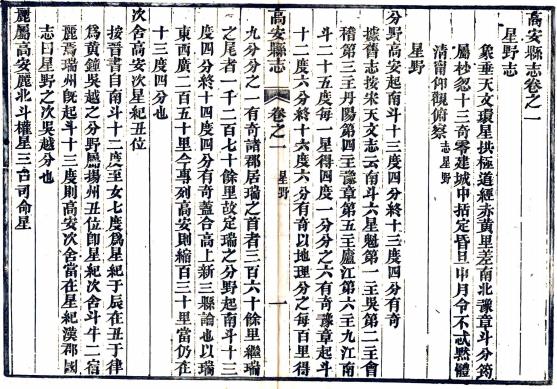 高安縣志卷之一
星野志
象垂天文環星拱極道經赤黃里差南北豫章斗分筠
屬杪忽十三奇零建城中括定昏旦中月令不忒黙體
清甯仰觀俯察志星野
星野
分野高安起南斗十三度四分終十三度四分有奇
據舊志按宋天文志云南斗六星魁第一主吳第二主會
稽第三主丹陽第四主豫章第五主廬江第六主九江南
斗二十五度每一星得四度一分分之六有奇豫章起斗
十二度六分終十六度六分有奇以地理分之每百里得
高安縣志
卷之一
星野
一
九分分之一有奇諸郡居瑞之首者三百六十餘里繼瑞
之尾者一千二百七十餘里故定瑞之分野起南斗十三
度四分終十四度四分有奇蓋合高上新三縣論也以瑞
東西廣二百五十里今專列高安則縮百三十里當仍在
十三度四分也
次舍高安次星紀丑位
按晉書自南斗十二度至女七度爲星紀于辰在丑于律
爲黃鐘吳越之分野屬揚州丑位卽星紀次舍斗牛二宿
麗焉瑞州旣起斗十三度則高安次舍當在星紀漢郡國
志曰星野之次吳越分也
麗屬高安麗北斗權星三台司命星